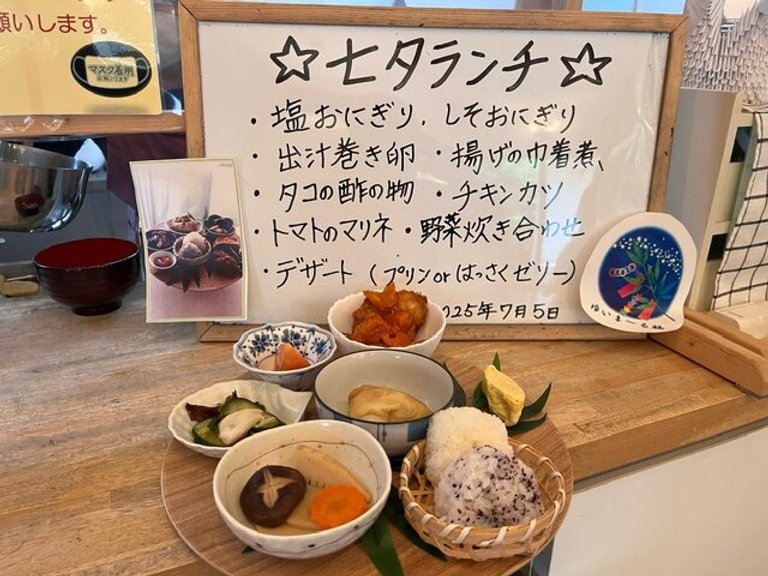 願いします。
マスク着用
☆七夕ランチ☆
・塩おにぎり、しそおにぎり
・出汁巻き卵 ・揚げの巾着煮、
・タコの酢の物 ・チキンカツ
・トマトのマリネ・野菜炊き合わせ
・デザート（プリンorはっさくゼリー）
2025年7月5日